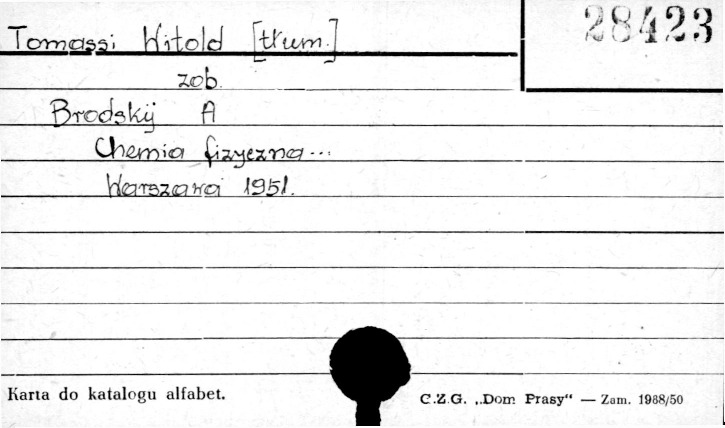 28423
Tomassi Witold [tłum.]
zob.
Brodskij A
Chemia fizyczna...
Warszawa 1951.
Karta do katalogu alfabet.
C.Z.G. „Dom Prasy“ — Zam. 1968/50